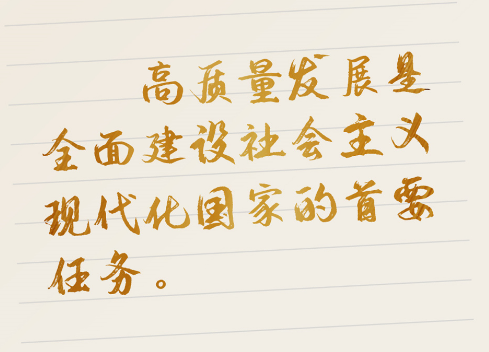 高质量发展是
全面建设社会主义
现代化国家的首要
任务。